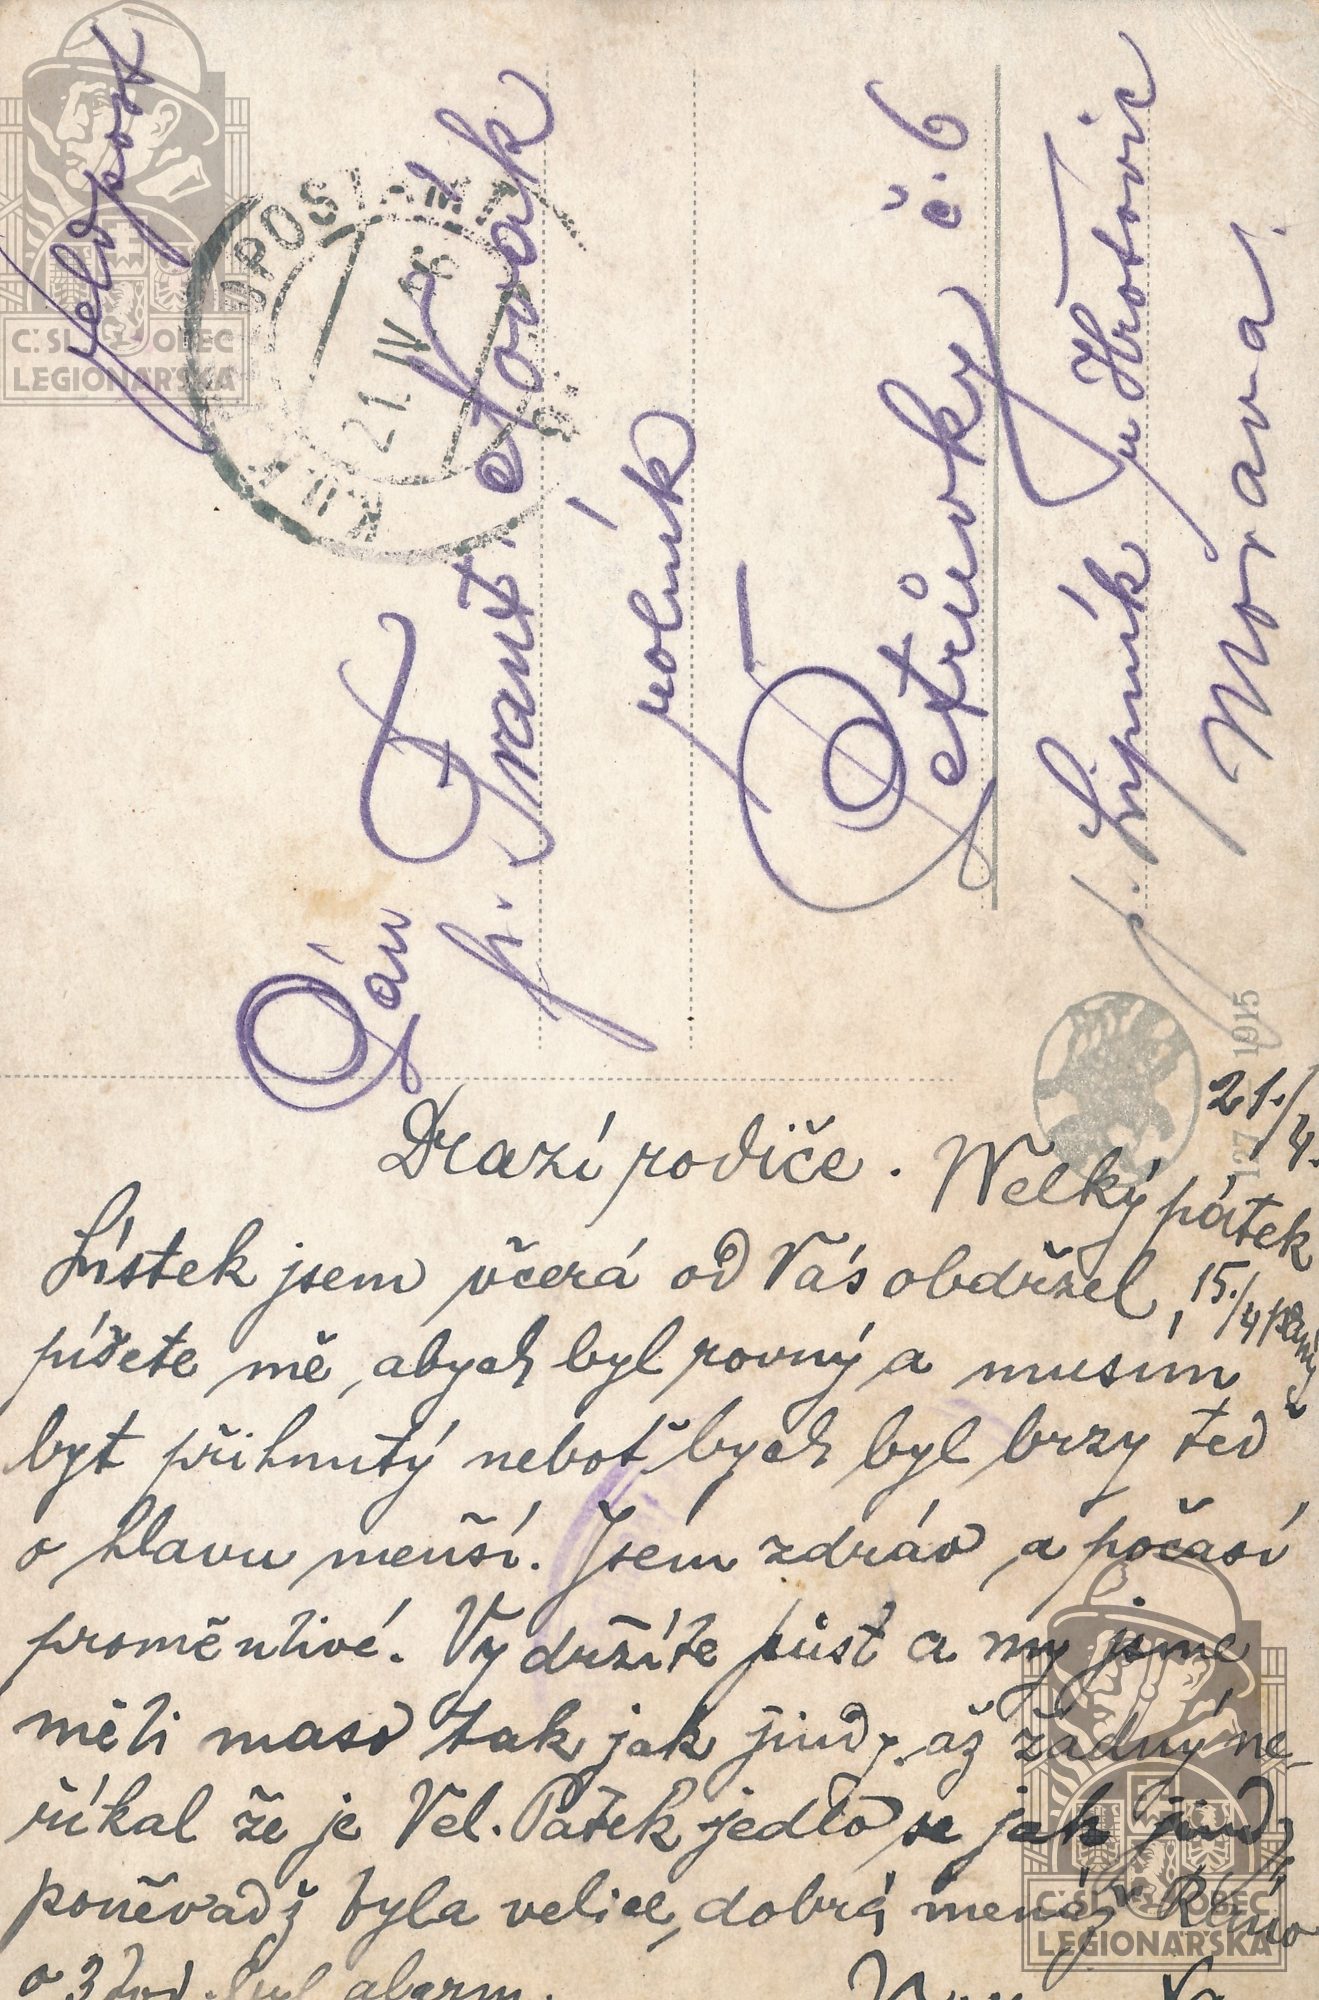 Feldpost
Pán
p. Frant. Novák
rolník
Petrůvky č. 6
p. Lipník u Hrotovic
Morava.
21. IV. 16
127 1915
21./4.
Drazí rodiče. Welký pátek
Lístek jsem včerá od Vás obdržel, 15./4 psaný
píšete mě, abych byl rovný a musím
byt přihnutý neboť bych byl brzy teď
o hlavu menší. Jsem zdráv a počasí
proměnlivé. Vy držíte půst a my jsme
měli maso tak jak jindy, až žádný ne-
říkal že je Vel. Pátek jedlo se jak jindy
poněvadž byla velice dobrá menáž Ráno
o 3 hod. byl alarm.
Č:SL. OBEC
LEGIONÁŘSKÁ
Č:SL. OBEC
LEGIONÁŘSKÁ